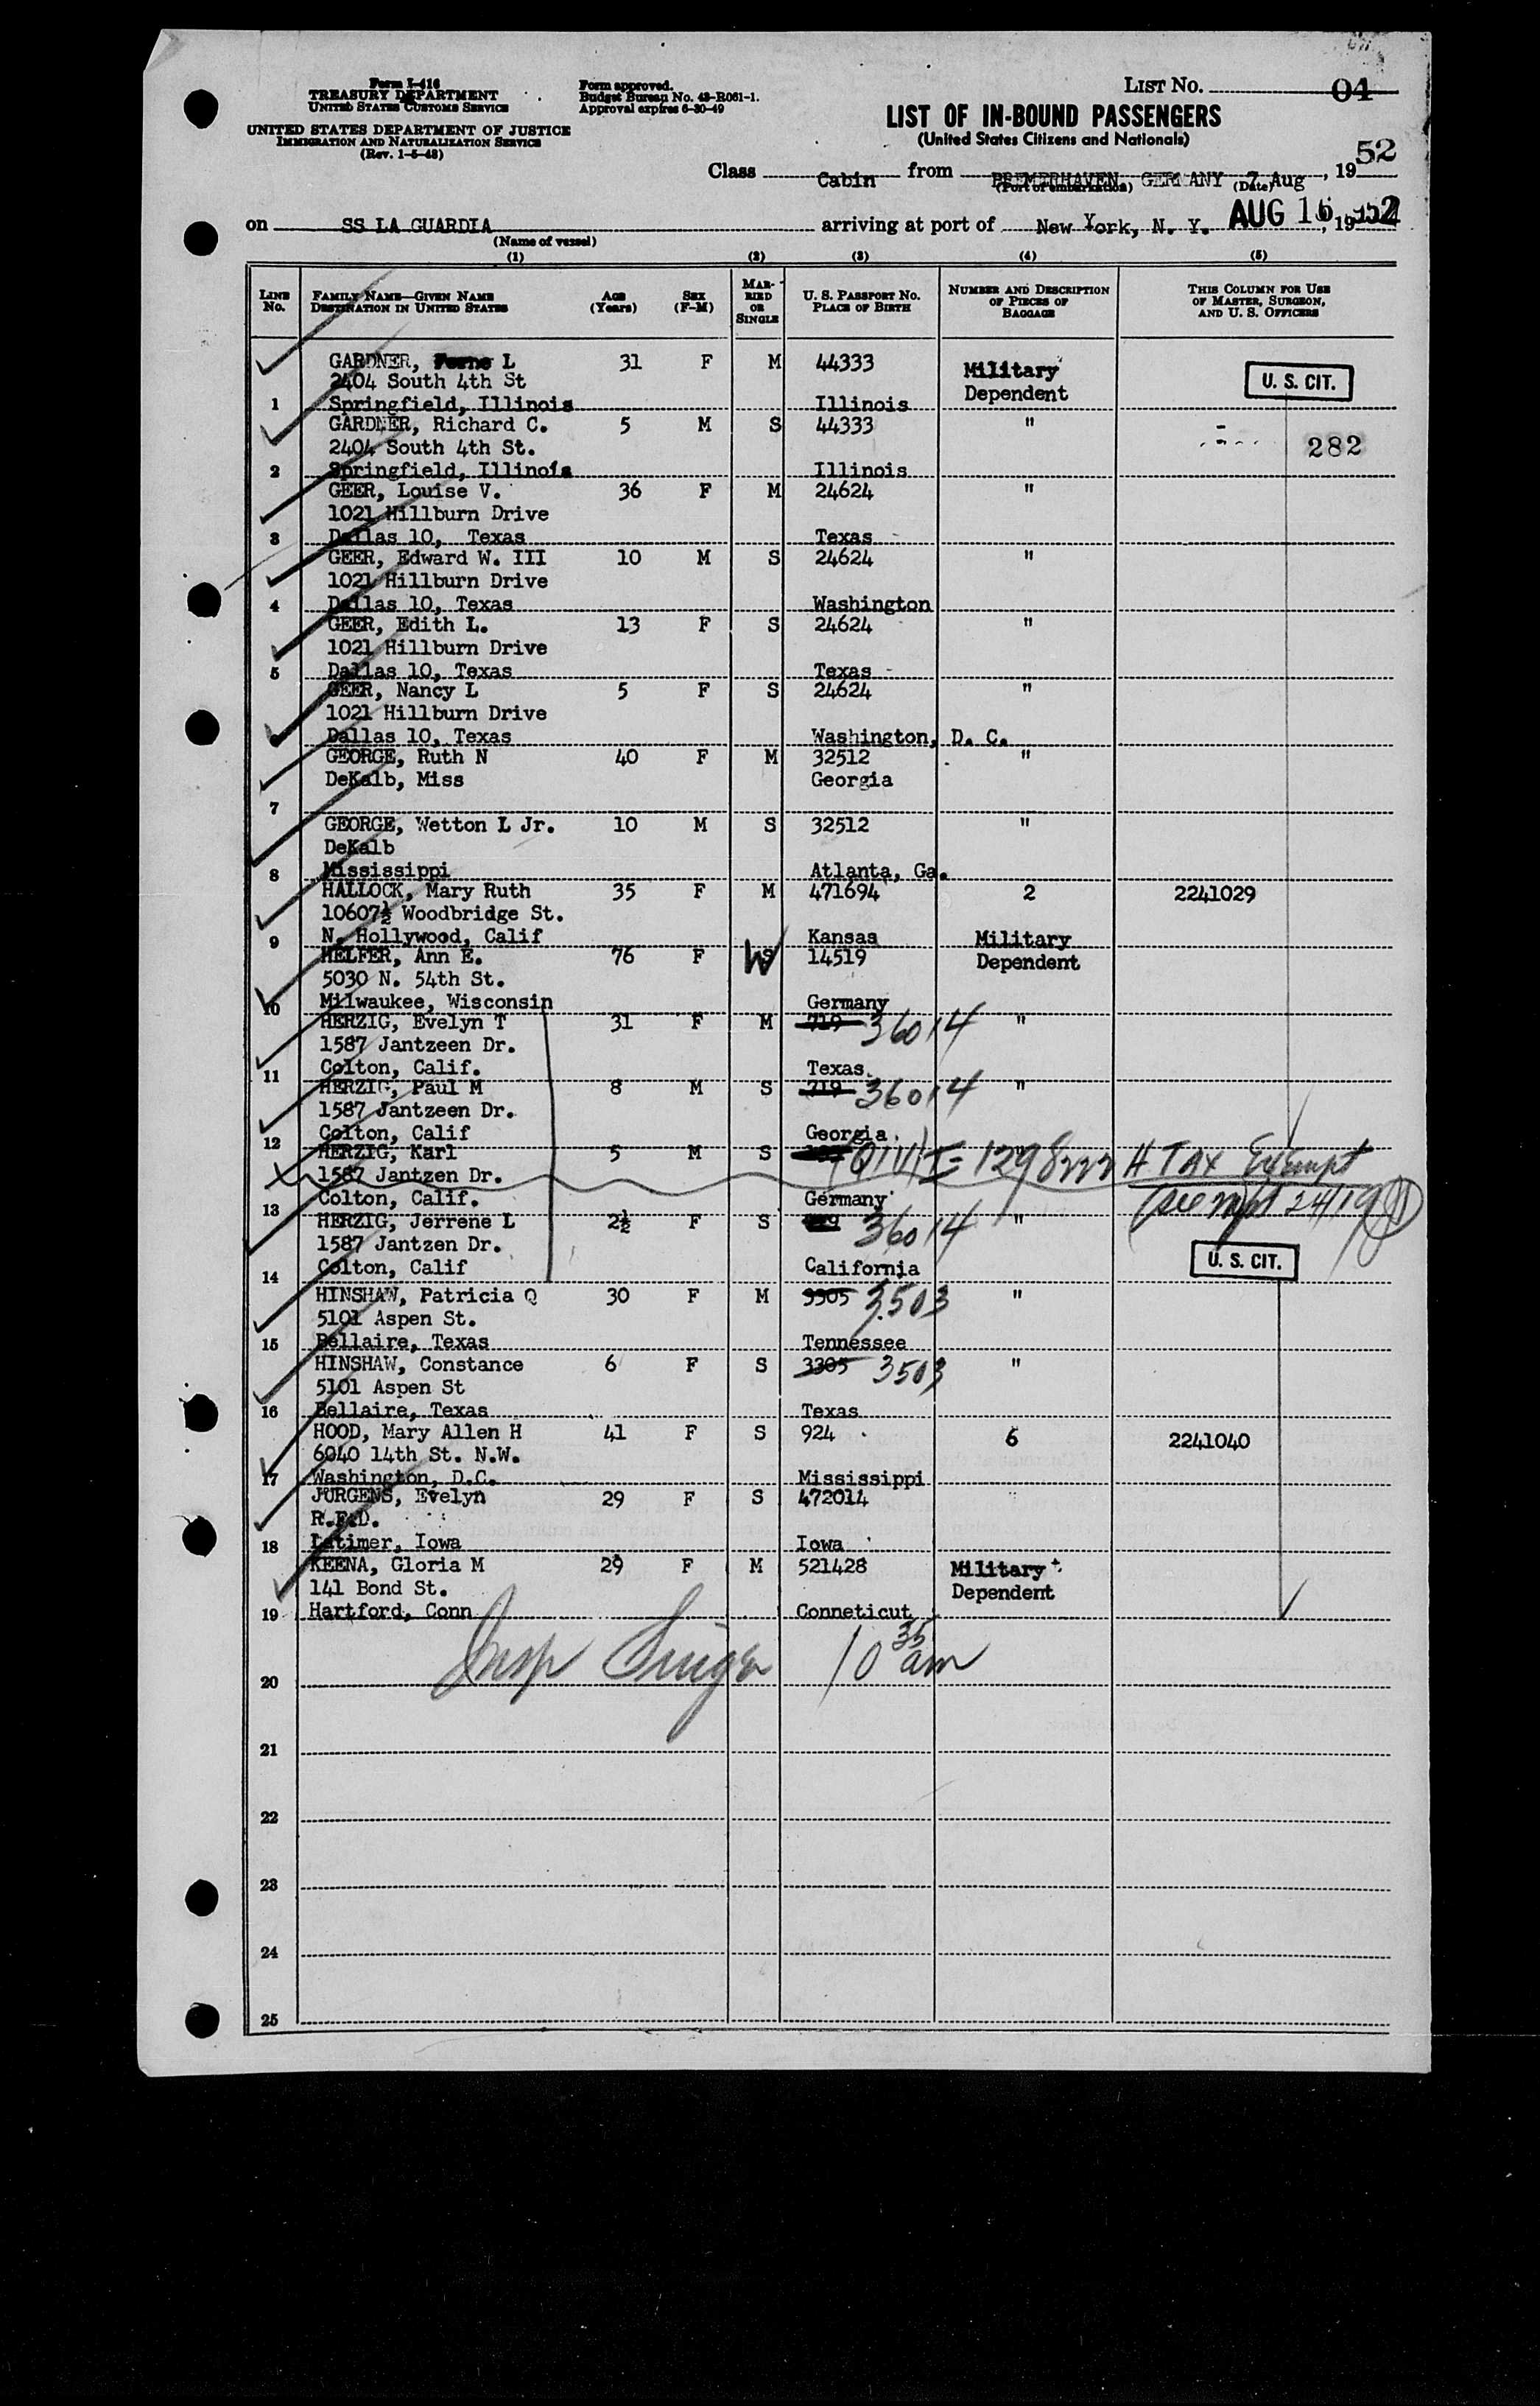 Form I-416
TREASURY DEPARTMENT
UNITED STATES CUSTOMS SERVICE
UNITED STATES DEPARTMENT OF JUSTICE
IMMIGRATION AND NATURALIZATION SERVICE
(Rev. 1-5-48)
Form approved.
Budget Bureau No. 43-R061-1.
Approval expires 6-30-49
LIST NO. 04
LIST OF IN-BOUND PASSENGERS
(United States Citizens and Nationals)
Class Cabin from BREMERHAVEN, GERMANY 7 Aug, 1952
(Port of embarkation) (Date)
on SS LA GUARDIA arriving at port of New York, N. Y. AUG 16 1952, 19
(Name of vessel)
(1) (2) (3) (4) (5)
LINE NO. FAMILY NAME—GIVEN NAME DESTINATION IN UNITED STATES AGE (Years) SEX (F-M) MARRIED OR SINGLE U. S. PASSPORT NO. PLACE OF BIRTH NUMBER AND DESCRIPTION OF PIECES OF BAGGAGE THIS COLUMN FOR USE OF MASTER, SURGEON, AND U. S. OFFICERS
GARDNER, Ferne L 31 F M 44333 Military
2404 South 4th St Dependent U. S. CIT.
1 Springfield, Illinois Illinois
GARDNER, Richard C. 5 M S 44333 "
2404 South 4th St. 282
2 Springfield, Illinois Illinois
GEER, Louise V. 36 F M 24624 "
1021 Hillburn Drive
3 Dallas 10, Texas Texas
GEER, Edward W. III 10 M S 24624 "
1021 Hillburn Drive
4 Dallas 10, Texas Washington
GEER, Edith L. 13 F S 24624 "
1021 Hillburn Drive
5 Dallas 10, Texas Texas
GEER, Nancy L 5 F S 24624 "
1021 Hillburn Drive
Dallas 10, Texas Washington, D. C.
GEORGE, Ruth N 40 F M 32512 "
DeKalb, Miss Georgia
7
GEORGE, Wetton L Jr. 10 M S 32512 "
DeKalb
8 Mississippi Atlanta, Ga.
HALLOCK, Mary Ruth 35 F M 471694 2 2241029
10607½ Woodbridge St.
9 N. Hollywood, Calif Kansas Military
HELFER, Ann E. 76 F W 14519 Dependent
5030 N. 54th St.
10 Milwaukee, Wisconsin Germany
HERZIG, Evelyn T 31 F M 719 36014 "
1587 Jantzeen Dr.
11 Colton, Calif. Texas
HERZIG, Paul M 8 M S 719 36014 "
1587 Jantzeen Dr.
12 Colton, Calif Georgia
HERZIG, Karl 5 M S H Tax Exempt
1587 Jantzen Dr.
13 Colton, Calif. Germany
HERZIG, Jerrene L 2½ F S 36014 "
1587 Jantzen Dr. U. S. CIT.
14 Colton, Calif California
HINSHAW, Patricia Q 30 F M 3305 3503 "
5101 Aspen St.
15 Bellaire, Texas Tennessee
HINSHAW, Constance 6 F S 3305 3503 "
5101 Aspen St
16 Bellaire, Texas Texas
HOOD, Mary Allen H 41 F S 924 6 2241040
6040 14th St. N.W.
17 Washington, D.C. Mississippi
JURGENS, Evelyn 29 F S 472014
R.F.D.
18 Latimer, Iowa Iowa
KEENA, Gloria M 29 F M 521428 Military
141 Bond St. Dependent
19 Hartford, Conn Conneticut
Insp 10 35 am
20
21
22
23
24
25